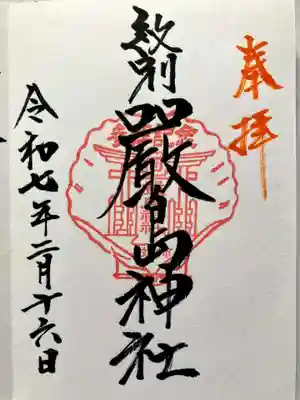 奉拝
紋別
嚴島神社
令和七年二月十六日